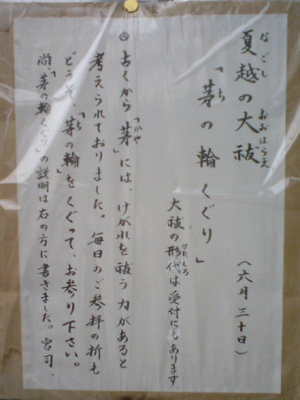 夏越の大祓
なごし おおはらえ
(六月三十日)
「茅の輪くぐり」
ち
大祓の形代は受付にもあります
かたしろ
◎古くから「茅」には、けがれを祓う力があると
かや
考えられておりました。毎日のご参拝の折も
どうぞ、「茅の輪」をくぐって、お参り下さい。
ち わ
尚、「茅の輪くぐり」の説明は右の方に書きました。宮司。